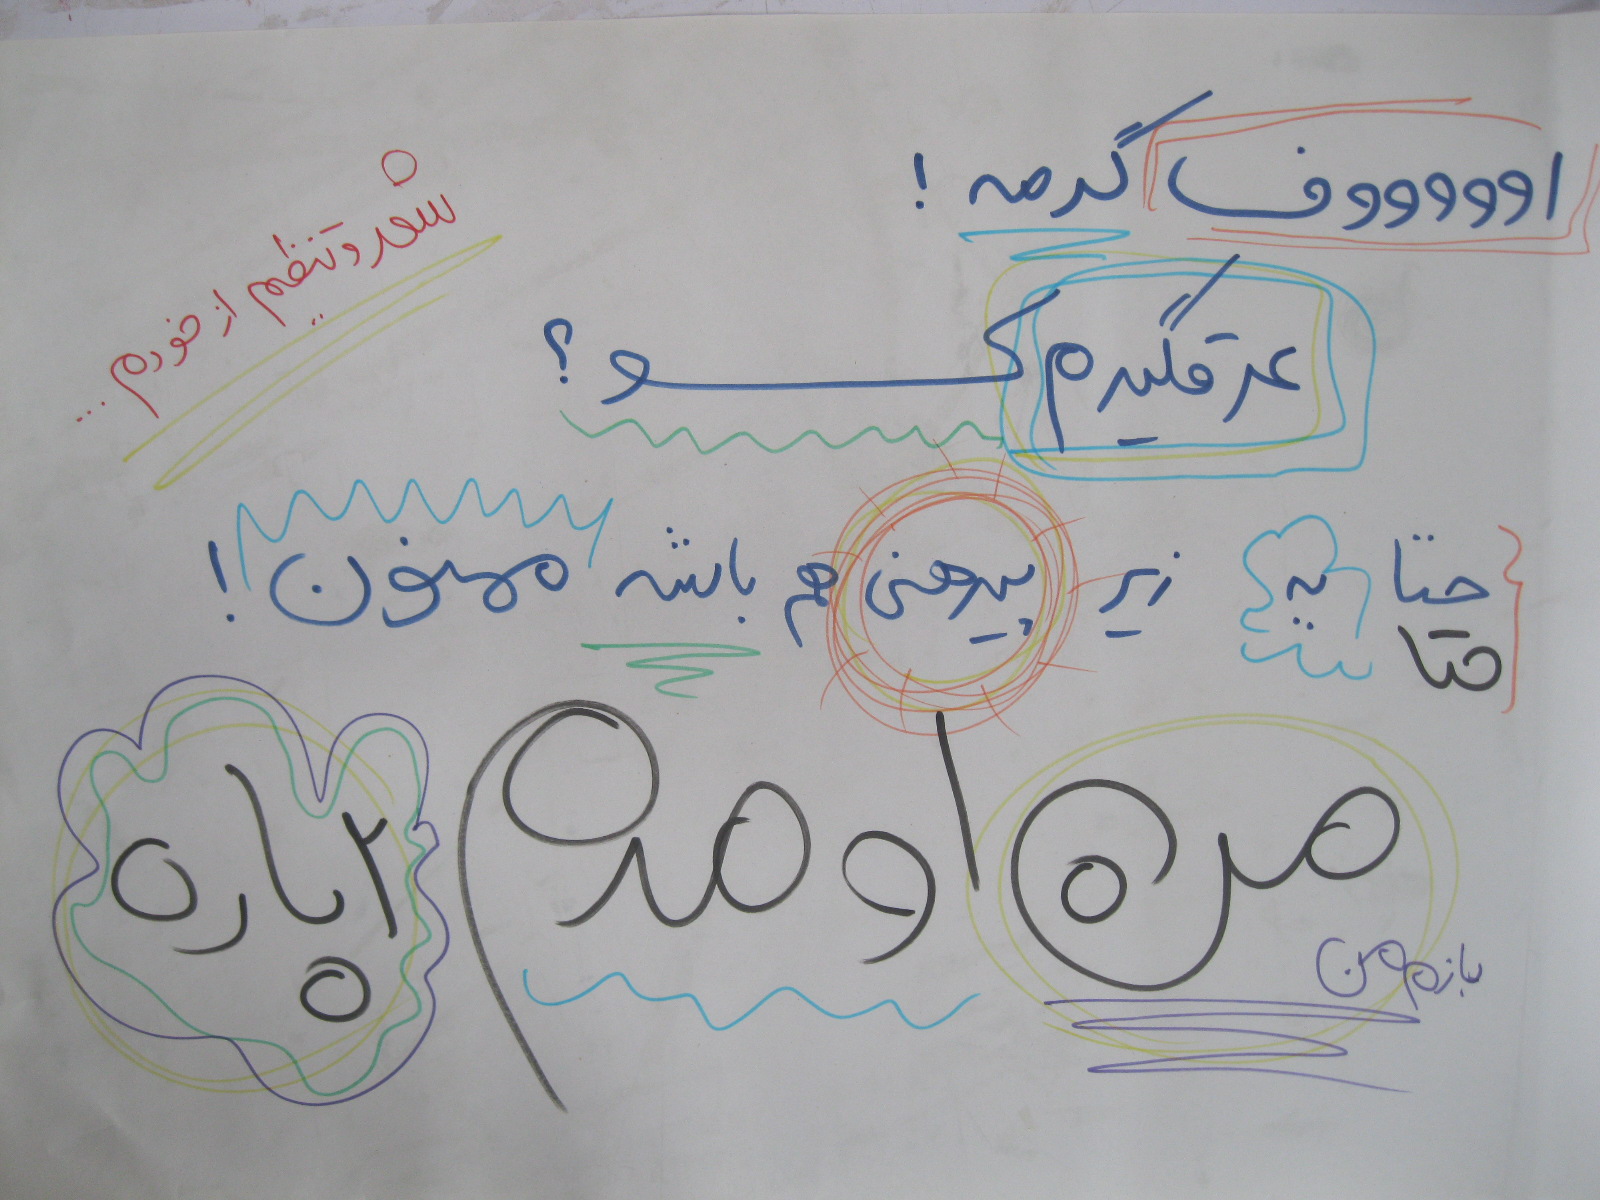 اوووووف گرمه !
عرقگیرم کـــــــو ؟
شعر و تنظیم از خودم ...
حتا یه زیر پیرهنی هم باشه ممنون !
حتا
من اومدم ۲باره
بازم من